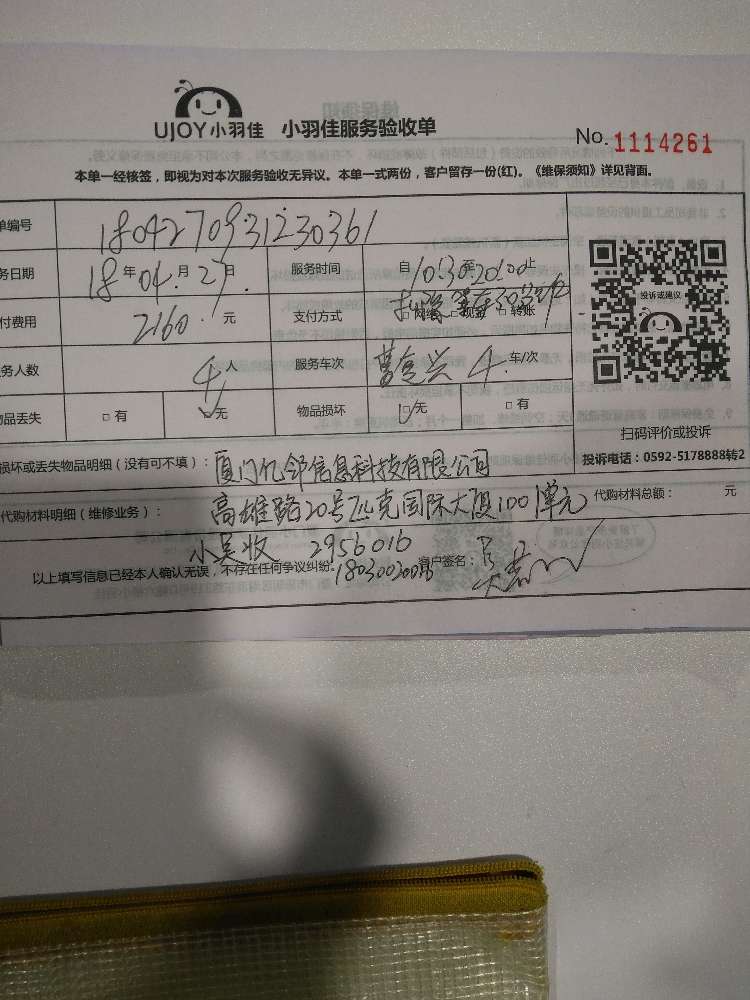 UJOY小羽佳 小羽佳服务验收单
No. 1114261
本单一经核签，即视为对本次服务验收无异议。本单一式两份，客户留存一份(红)。《维保须知》详见背面。
单编号 1804270931230361
务日期 18年04月27日 服务时间 自10:30至20:00止
付费用 2160元 支付方式 □网络 □现金 □转账
投诉或建议
务人数 4人 服务车次 4车/次
物品丢失 □有 ☑无 物品损坏 ☑无 □有
扫码评价或投诉
损坏或丢失物品明细（没有可不填）：厦门亿邻信息科技有限公司
投诉电话：0592-5178888转2
代购材料明细（维修业务）：高雄路20号匹克国际大厦1001单元 代购材料总额： 元
小吴收 2956016
以上填写信息已经本人确认无误，不存在任何争议纠纷。 客户签名：